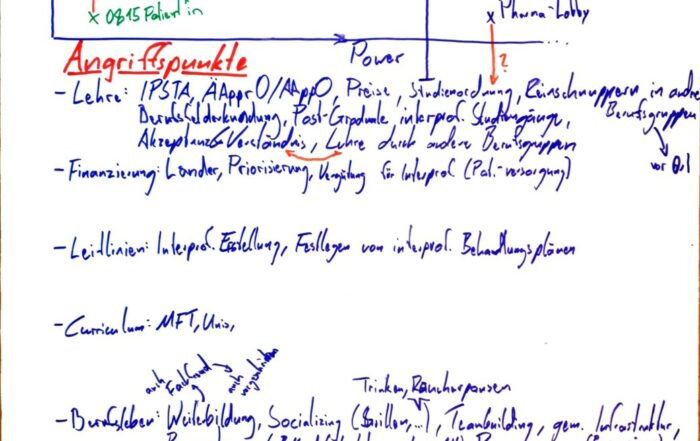 x 0815 Patient in
x Pharma-Lobby
Power
...
?
Angriffspunkte
- Lehre: IPSTA, ÄApprO/AAppO, Preise, Studienordnung, Reinschnuppern in andre
Berufsgruppen
Berufsfelderkundung, Post-Graduale interprof. Studiengänge,
Akzeptanz & Verständnis, Lehre durch andere Berufsgruppen
vor Ort
- Finanzierung: Länder, Priorisierung, Vergütung für Interprof. (Pal.-versorgung)
- Leitlinien: Interprof. Erstellung, Festlegen von interprof. Behandlungsplänen
- Curriculum: MFT, Unis,
auch Fachfremd auch
Trinken, Raucherpausen
- Berufsleben: Weiterbildung, Socializing (Grillen,...), Teambuilding, gem. Infrastruktur,